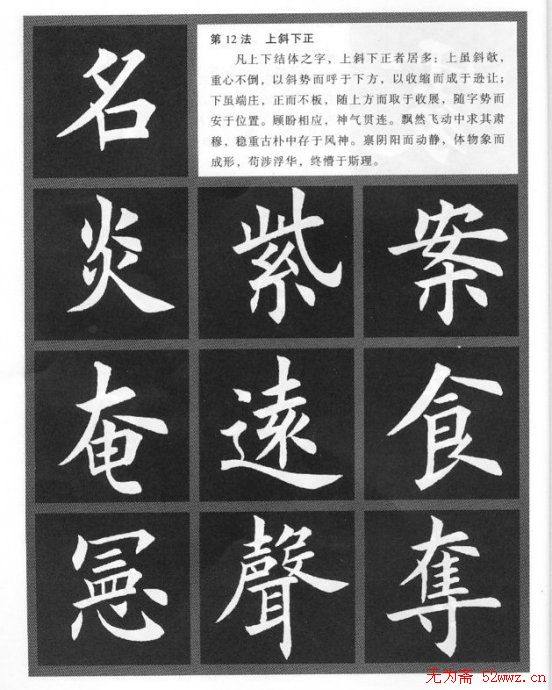 名
第12法 上斜下正
凡上下结体之字，上斜下正者居多；上虽斜欹，
重心不倒，以斜势而呼于下方，以收缩而成于逊让；
下虽端庄，正而不板，随上方而取于收展，随字势而
安于位置。顾盼相应，神气贯连。飘然飞动中求其肃
穆，稳重古朴中存于风神。禀阴阳而动静，体物象而
成形，苟涉浮华，终懵于斯理。
炎 紫 案
奄 遠 食
憲 聲 奪
无为斋 52wwz.cn